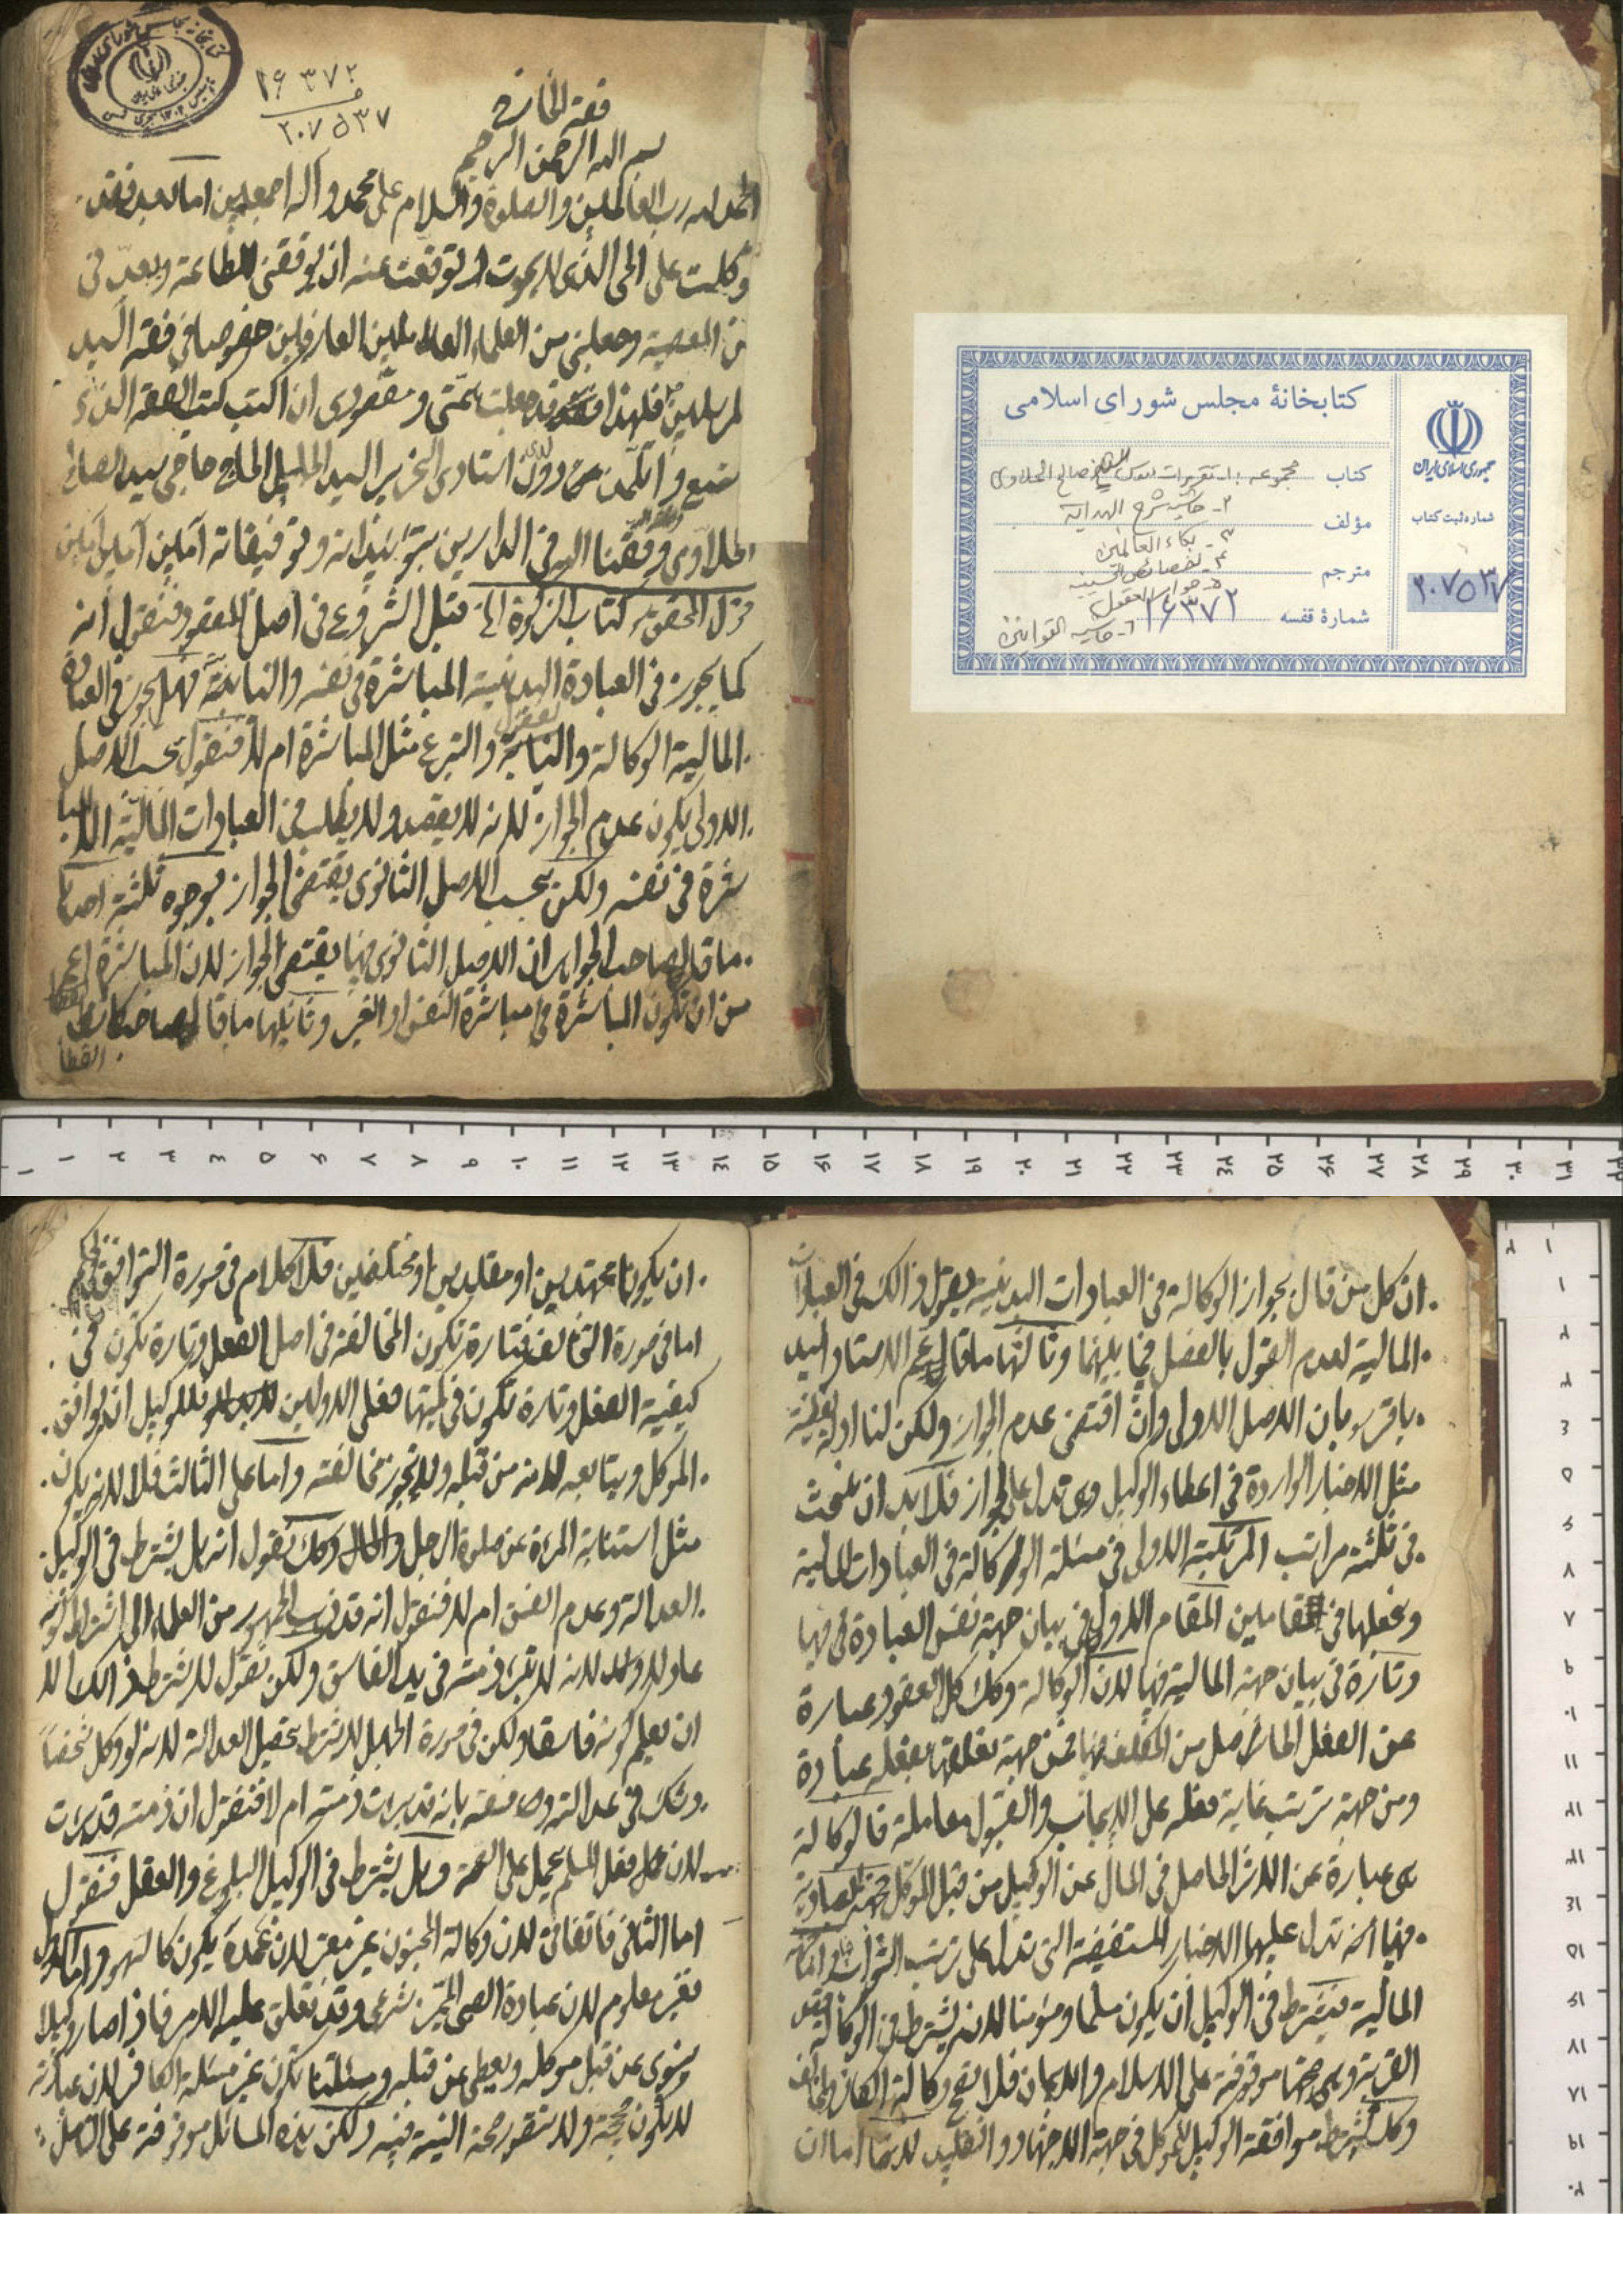 کتابخانهٔ مجلس شورای اسلامی
جمهوری اسلامی ایران
کتاب مجموعه: ۱- تقریرات صالح
شماره ثبت کتاب
مؤلف ۲- حاشیه شرح الهدایه
۳- بکاء العالمین
مترجم ۴- خصائص الحسینیه
۲۰۷۵۳۷
شمارهٔ قفسه ۱۶۳۷۲
۶- حاشیه القوانین
۱۶۳۷۲
۲۰۷۵۳۷
بسم الله الرحمن الرحیم
الحمد لله رب العالمین والصلوة والسلام علی محمد وآله اجمعین اما بعد فقد
توکلت علی الحی الذی لا یموت توقعت عنه ان یوفقنی للطاعة وبعدنی
من المعصیة وجعلنی من العلماء العاملین العارفین خصوصا فی فقه السید
المرسلین فلهذا قد جعلت همتی ومقصودی ان اکتب کتب الفقه الذی
استادی النحریر السید الجلیل الحاج حاجی سید صالح
الحلاوی وفقنا الله فی الدارین وتوفیقاته آمین آمین آمین
قول المحقق ره کتاب الزکوة الخ قبل الشروع فی اصل المقصود فنقول انه
کما یجوز فی العبادة البدنیة المباشرة فی نفسه والنیابة فهل یجوز فی العبادة
المالیة الوکالة والنیابة والتبرع مثل المباشرة ام لا فنقول بحسب الاصل
الاولی یکون عدم الجواز لانه لا یقصد ولا یطلب فی العبادات المالیة الا المبا
شرة فی نفسه ولکن بحسب الاصل الثانوی یقتضی الجواز بوجوه ثلثة احدها
ما قال صاحب الجواهر ان الاصل الثانوی فیها یقتضی الجواز لان المباشرة اعم
من ان تکون المباشرة فی مباشرة النفس او الغیر وثانیها ما قال صاحب کاشف
الغطا
ان کل من قال بجواز الوکالة فی العبادات البدنیة یقول ذالک فی العبادات
المالیة لعدم القول بالفصل فیما بینهما وثالثها ما قال الاستاد السید
باقر ره بان الاصل الاولی وان اقتضی عدم الجواز ولکن لنا ادلة
مثل الاخبار الواردة فی اعطاء الوکیل وهی تدل علی الجواز فلا بد ان نبحث
فی ثلثة مراتب المرتبة الاولی فی مسئلة الوکالة فی العبادات المالیة
ونجعلها فی مقامین المقام الاول فی بیان جهة نفس العبادة فیها
وتارة فی بیان جهة المالیة فیها لان الوکالة وکک کل العقود عبارة
عن الفعل الحاصل من المکلف فیها فمن جهة تعلقها بفعله عبادة
ومن جهة ترتب غایة فعله علی الایجاب والقبول معاملة فالوکالة
هی عبارة عن الاثر الحاصل فی المال عن الوکیل من قبل الموکل فجهة العبادیة
فیها انه تدل علیها الاخبار المستفیضة التی تدل علی ترتب الثواب واما
المالیة فیشترط فی الوکیل ان یکون مسلما ومؤمنا لانه یشترط فی الوکالة قصد
القربة وهی صحتها موقوفة علی الاسلام والایمان فلا تصح وکالة الکافر والمخالف
وکک یشترط موافقة الوکیل للموکل فی جهة الاجتهاد والتقلید لانهما اما ان
ان یکونا مجتهدین او مقلدین او مختلفین فلا کلام فی صورة التوافق
اما فی صورة التخالف فتارة تکون المخالفة فی اصل الفعل وتارة تکون فی
کیفیة الفعل وتارة تکون فی کمیتها فعلی الاولین للوکیل ان یوافق
الموکل ویتابعه لانه من قبله ولا یجوز مخالفته واما علی الثالث فلا لانه یکون
مثل استنابة المرءة عن صلوة الرجل وکک نقول انه هل یشترط فی الوکیل
العدالة وعدم الفسق ام لا فنقول انه قد ذهب المشهور من العلماء الی اشتراط کونه
عادلا لانه لا تبرء ذمته فی ید الفاسق ولکن نقول لا یشترط ذالک الا
ان یعلم کونه فاسقا ولکن فی صورة الجهل لا یشترط تحصیل العدالة لانه لو وکل شخصا
وشک فی عدالته وصفته بانه قد برات ذمته ام لا فنقول ان ذمته قد برات
لان فعل المسلم یحمل علی الصحة وهل یشترط فی الوکیل البلوغ والعقل فنقول
اما الثانی فاتفاقی لان وکالة المجنون غیر معتبر لان عمده یکون کالسهو واما الاول
فغیر معلوم لان عبادة الصبی الممیز شرعی وقد تعلق علیه الامر فاذا صار وکیلا
وینوی عن قبل موکله ویعطی عن قبله ومسئلتنا تکون غیر مسئلة الکافر لان عبادته
لا یکون صحیحة ولا یتصور صحة النیة فیه ولکن هذه المسائل موقوفة علی التامل